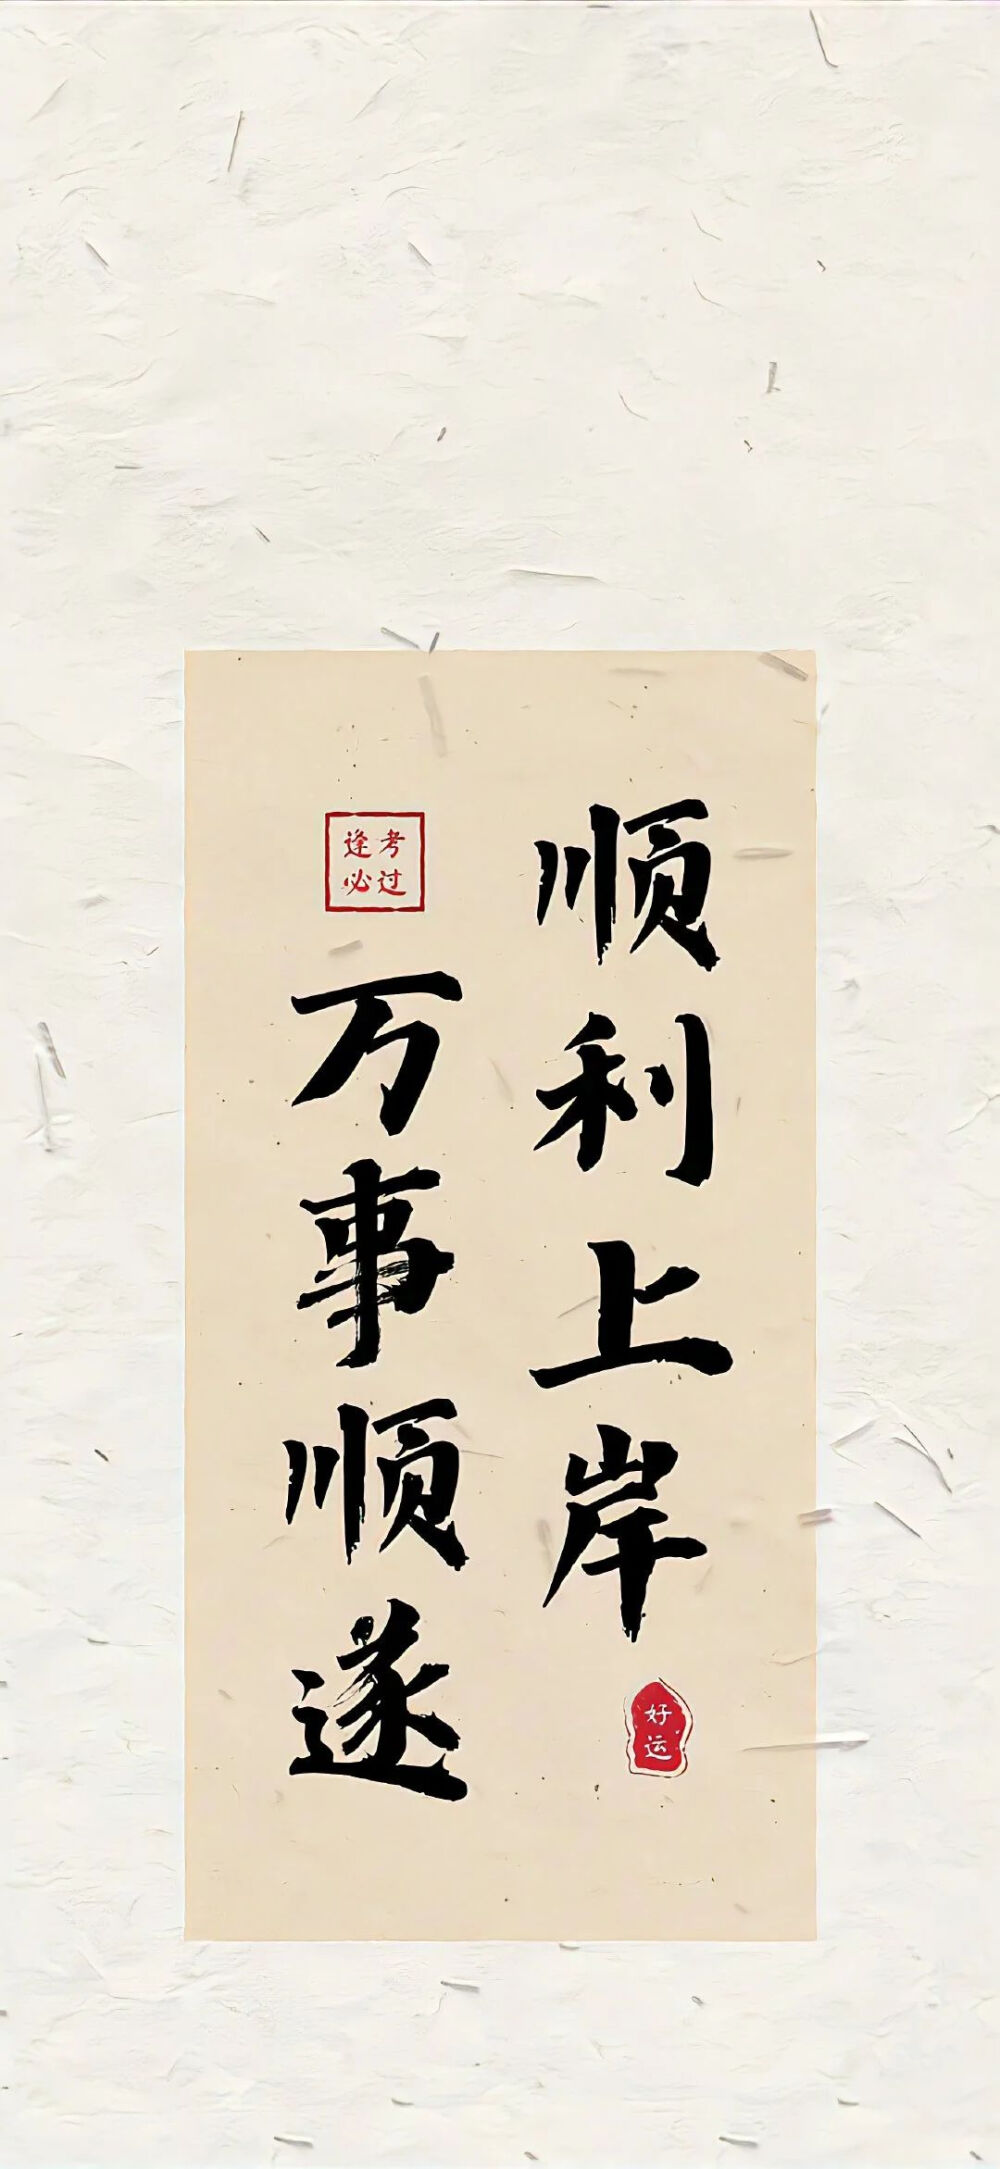 顺利上岸
好运
逢考
必过
万事顺遂